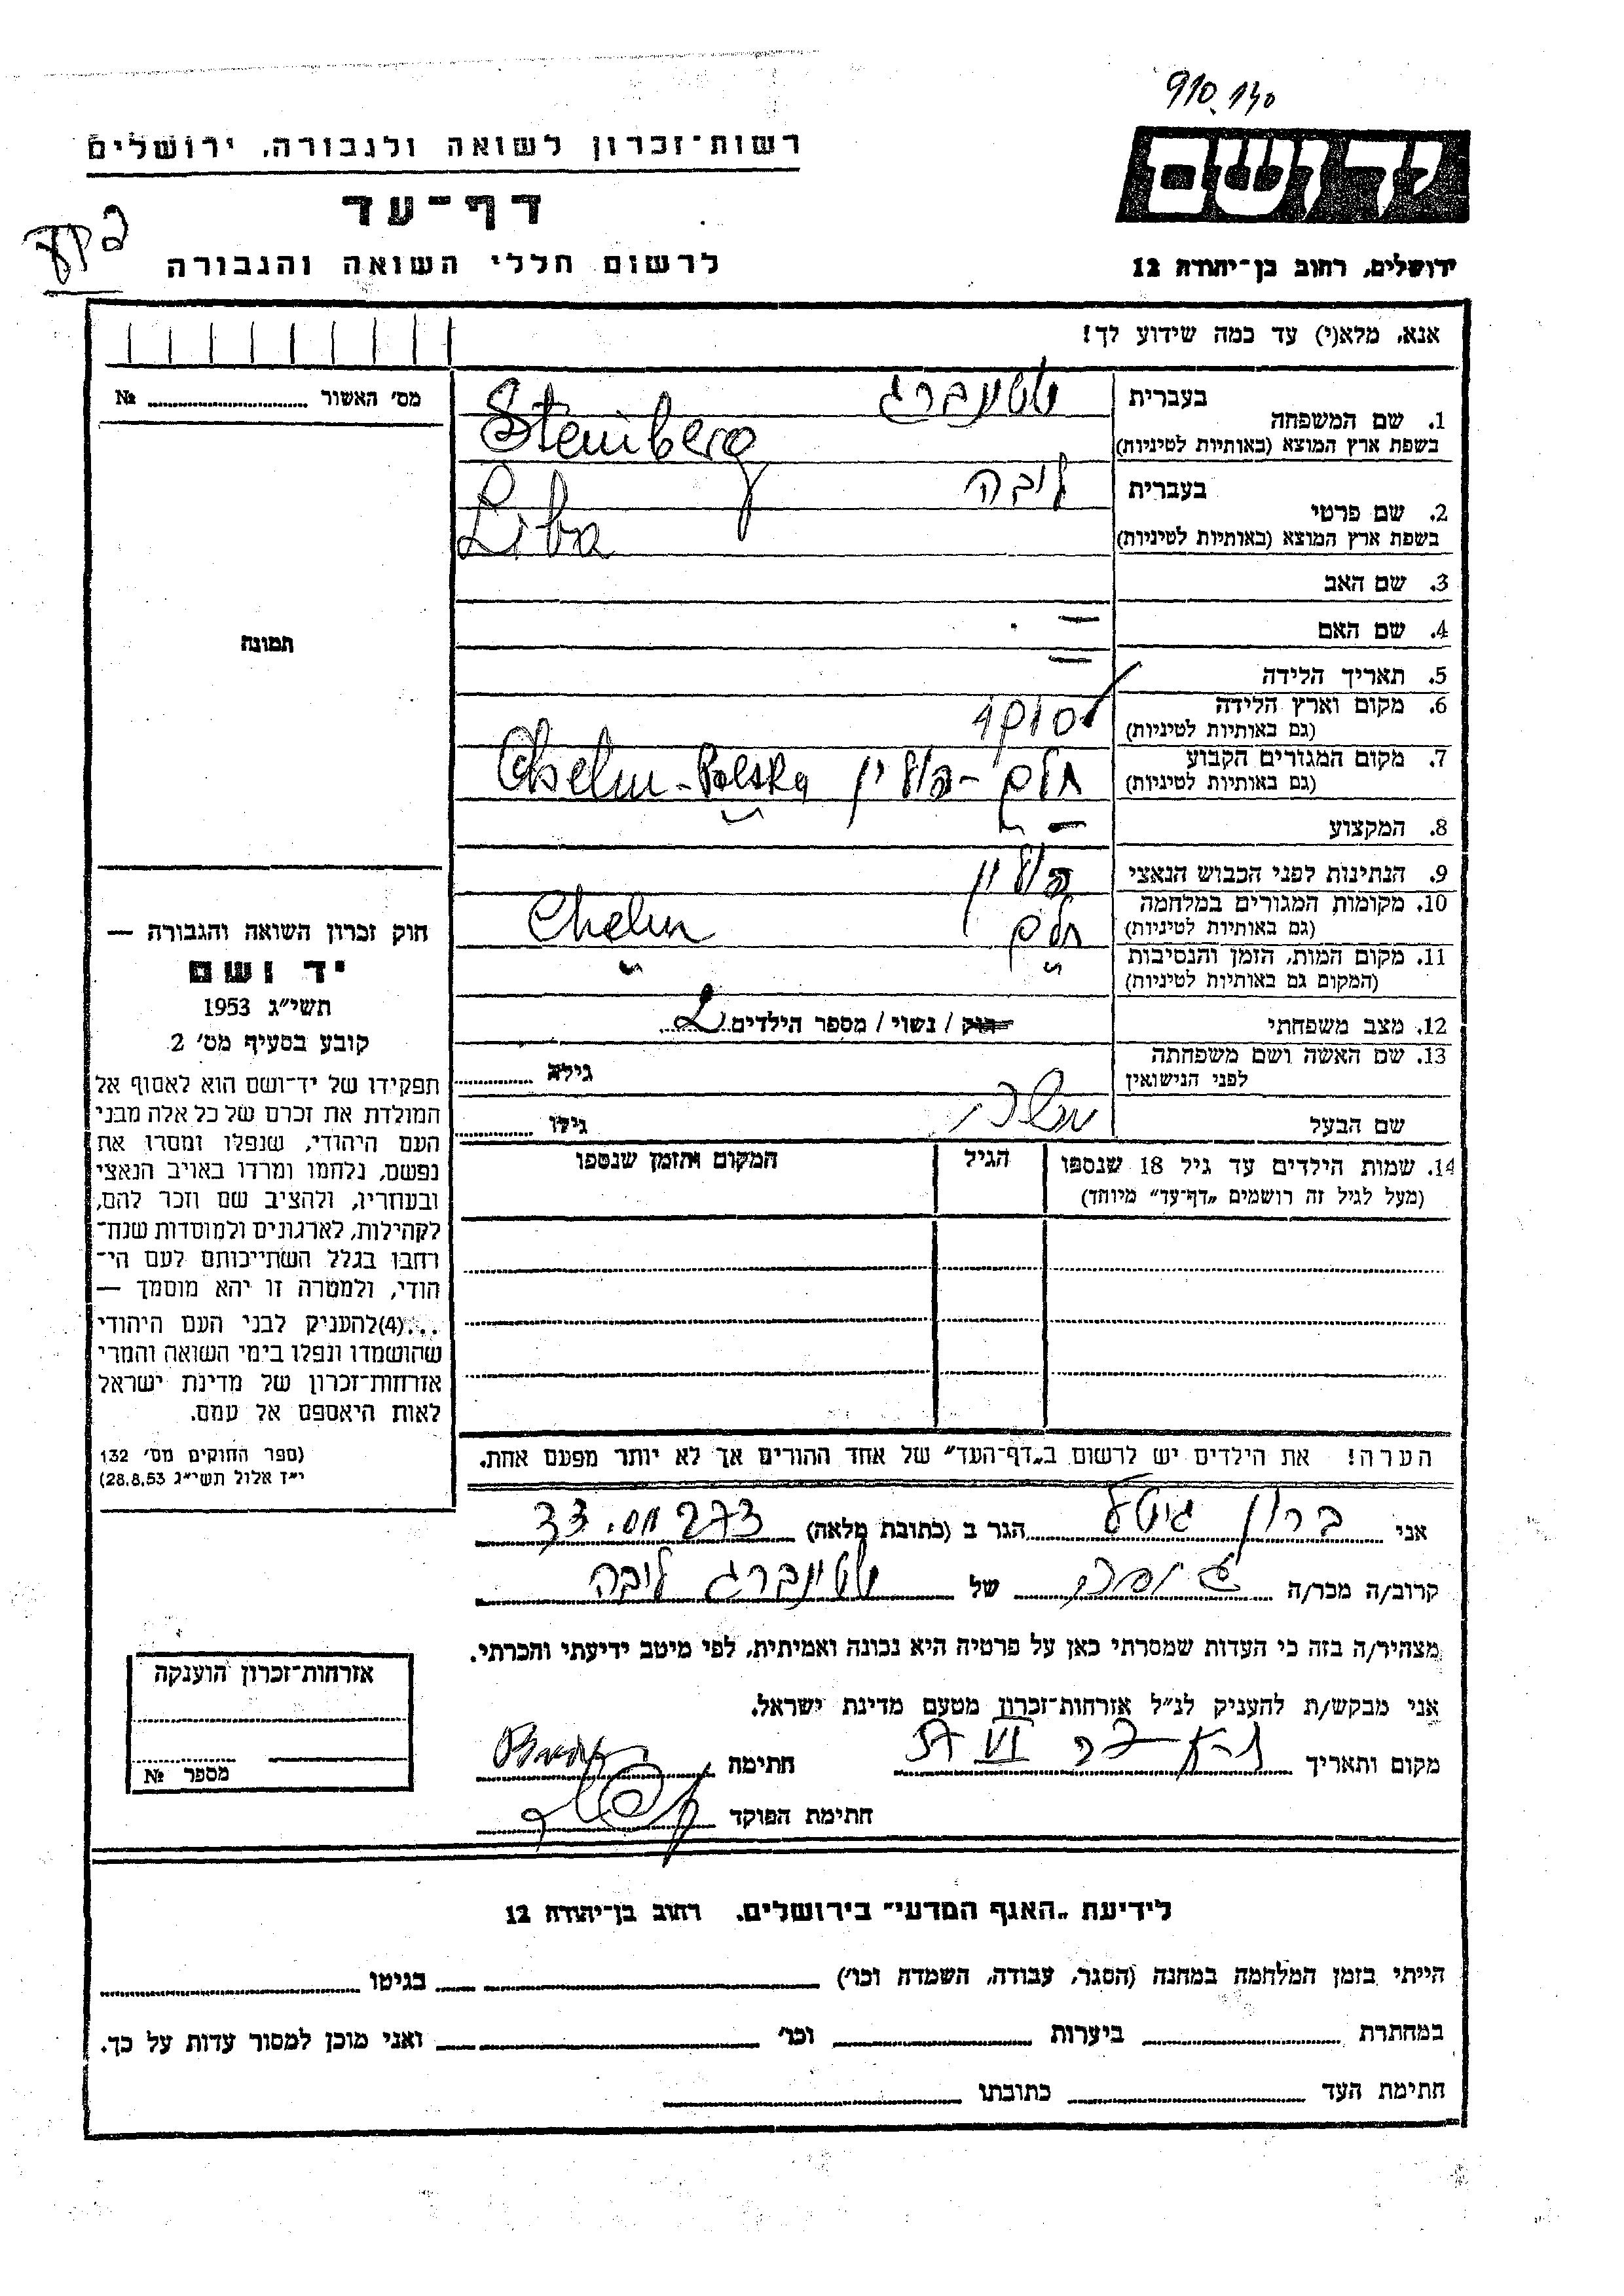 910.140
רשות־זכרון לשואה ולגבורה, ירושלים
יד ושם
דף־עד
לרשום חללי השואה והגבורה
ירושלים, רחוב בן־יהודה 12
אנא, מלא(י) עד כמה שידוע לך!
מס׳ האשור ........ №
1. שם המשפחה
בעברית שטינברג
בשפת ארץ המוצא (באותיות לטיניות) Steinberg
2. שם פרטי
בעברית ליבה
בשפת ארץ המוצא (באותיות לטיניות) Liba
3. שם האב
4. שם האם —
5. תאריך הלידה —
6. מקום וארץ הלידה
(גם באותיות לטיניות)
7. מקום המגורים הקבוע
(גם באותיות לטיניות) חלם - פולין Chelm - Polska
8. המקצוע —
9. הנתינות לפני הכבוש הנאצי פולין
10. מקומות המגורים במלחמה
(גם באותיות לטיניות) חלם Chelm
11. מקום המות, הזמן והנסיבות
(המקום גם באותיות לטיניות) " "
12. מצב משפחתי רוק / נשוי / מספר הילדים
13. שם האשה ושם משפחתה
לפני הנישואין
גילה
שם הבעל
גילו
14. שמות הילדים עד גיל 18 שנספו
(מעל לגיל זה רושמים „דף־עד״ מיוחד)
הגיל
המקום והזמן שנספו
הערה! את הילדים יש לרשום ב„דף־העד״ של אחד ההורים אך לא יותר מפעם אחת.
תמונה
חוק זכרון השואה והגבורה —
יד ושם
תשי״ג 1953
קובע בסעיף מס׳ 2
תפקידו של יד־ושם הוא לאסוף אל
המולדת את זכרם של כל אלה מבני
העם היהודי, שנפלו ומסרו את
נפשם, נלחמו ומרדו באויב הנאצי
ובעוזריו, ולהציב שם וזכר להם,
לקהילות, לארגונים ולמוסדות שנח־
רבו בגלל השתייכותם לעם הי־
הודי, ולמטרה זו יהא מוסמך —
...(4)להעניק לבני העם היהודי
שהושמדו ונפלו בימי השואה והמרי
אזרחות־זכרון של מדינת ישראל
לאות היאספם אל עמם.
(ספר החוקים מס׳ 132
י״ד אלול תשי״ג 28.8.53)
אני ברון גיטל הגר ב (כתובת מלאה)
קרוב/ה מכר/ה של שטינברג ליבה
מצהיר/ה בזה כי העדות שמסרתי כאן על פרטיה היא נכונה ואמיתית, לפי מיטב ידיעתי והכרתי.
אני מבקש/ת להעניק לנ״ל אזרחות־זכרון מטעם מדינת ישראל.
מקום ותאריך
חתימה
חתימת הפוקד
אזרחות־זכרון הוענקה
מספר №
לידיעת „האגף המדעי״ בירושלים, רחוב בן־יהודה 12
הייתי בזמן המלחמה במחנה (הסגר, עבודה, השמדה וכו׳) בגיטו
במחתרת ביערות וכו׳ ואני מוכן למסור עדות על כך.
חתימת העד כתובתו